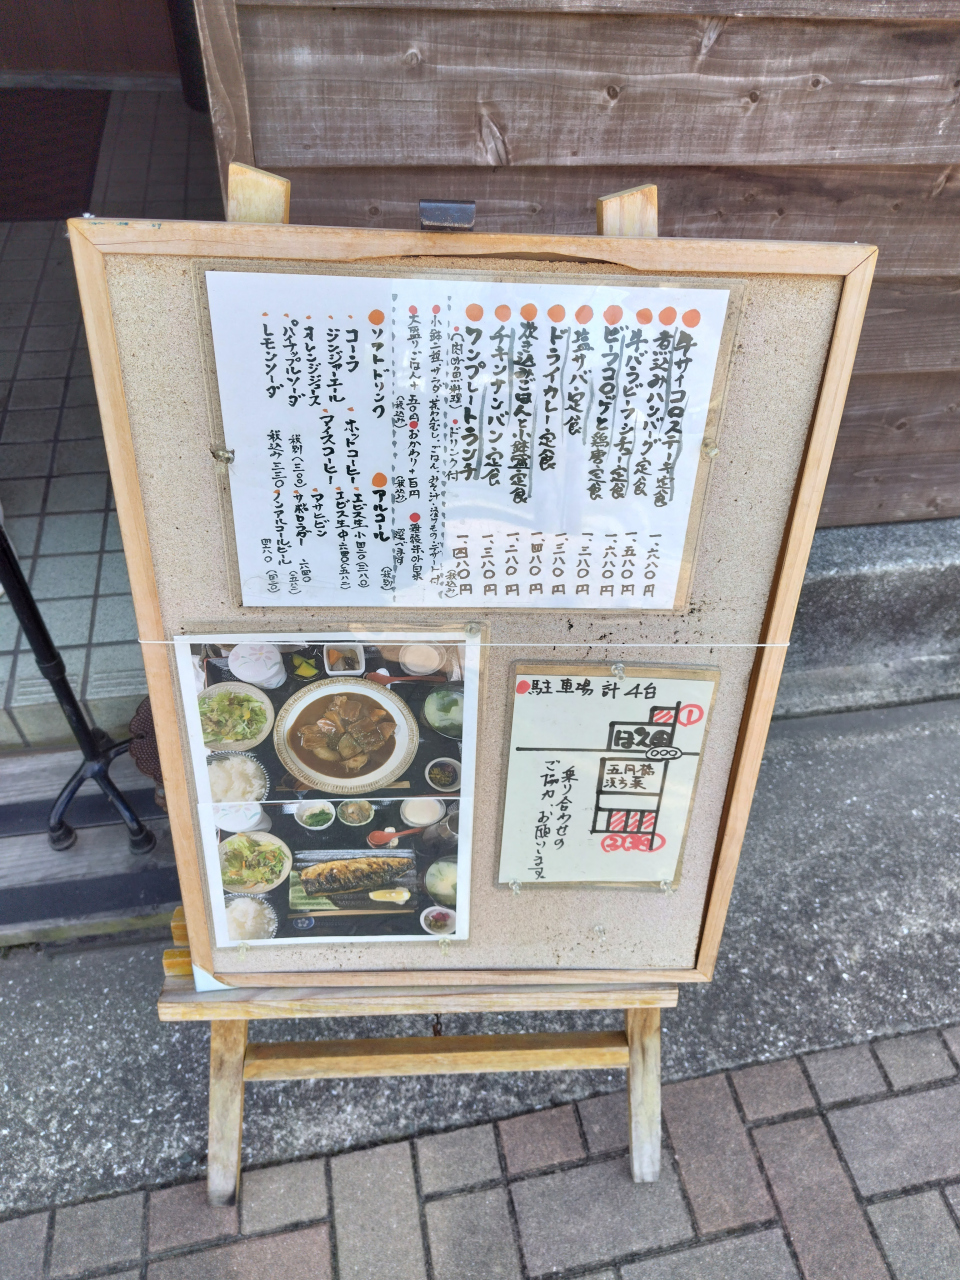 牛サイコロステーキ定食 一、六八〇円
煮込みハンバーグ定食 一、五八〇円
牛バラビーフシチュー定食 一、六八〇円
ビーフコロッケと鶏唐定食 一、三八〇円
塩サバ定食 一、三八〇円
ドライカレー定食 一、四八〇円
炊き込みごはんと小鉢盛定食 一、二八〇円
チキンナンバン定食 一、三八〇円
ワンプレートランチ 一、四八〇円
(肉か魚料理)・ドリンク付 (税込み)
小鉢二種、サラダ、茶わんむし、ごはん、みそ汁・漬けもの・デザート付
大盛りごはん+五〇円 (税込み)
おかわり+百円 (税込み)
雑穀米か白米 選べます
ソフトドリンク
コーラ
ジンジャーエール
オレンジジュース
パイナップルソーダ
レモンソーダ
ホットコーヒー
アイスコーヒー
税別(三〇〇)
税込み三三〇
アルコール (税別)
エビス生小四二〇(三八〇)
エビス生中六四〇(五八二)
アサヒビン
サッポロラガー 六四〇(五八二)
ノンアルコールビール 四六〇
駐車場 計4台
①
はス田
五月橋
浜ち薬
②③④
乗り合わせの
ご協力、お願いします